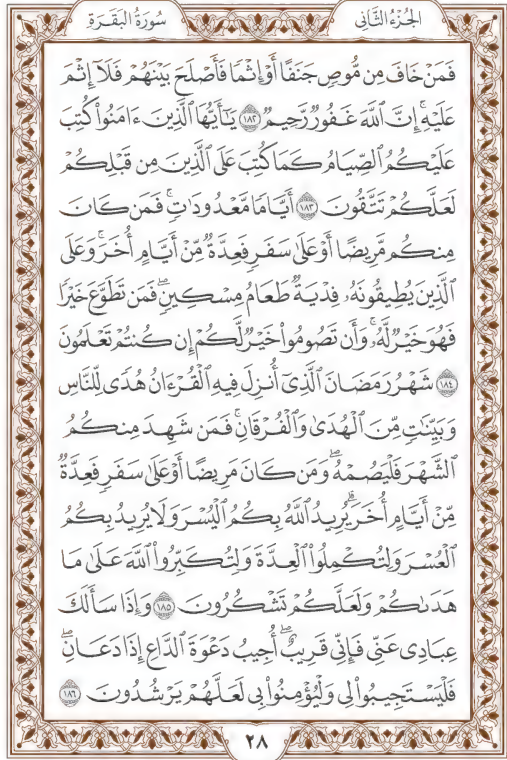 الجُزْءُ الثَّانِي سُورَةُ البَقَرَةِ
فَمَنْ خَافَ مِن مُّوصٍ جَنَفًا أَوْ إِثْمًا فَأَصْلَحَ بَيْنَهُمْ فَلَآ إِثْمَ
عَلَيْهِ ۚ إِنَّ ٱللَّهَ غَفُورٌ رَّحِيمٌ ١٨٢ يَـٰٓأَيُّهَا ٱلَّذِينَ ءَامَنُوا۟ كُتِبَ
عَلَيْكُمُ ٱلصِّيَامُ كَمَا كُتِبَ عَلَى ٱلَّذِينَ مِن قَبْلِكُمْ
لَعَلَّكُمْ تَتَّقُونَ ١٨٣ أَيَّامًا مَّعْدُودَٰتٍ ۚ فَمَن كَانَ
مِنكُم مَّرِيضًا أَوْ عَلَىٰ سَفَرٍ فَعِدَّةٌ مِّنْ أَيَّامٍ أُخَرَ ۚ وَعَلَى
ٱلَّذِينَ يُطِيقُونَهُۥ فِدْيَةٌ طَعَامُ مِسْكِينٍ ۖ فَمَن تَطَوَّعَ خَيْرًا
فَهُوَ خَيْرٌ لَّهُۥ ۚ وَأَن تَصُومُوا۟ خَيْرٌ لَّكُمْ إِن كُنتُمْ تَعْلَمُونَ
١٨٤ شَهْرُ رَمَضَانَ ٱلَّذِىٓ أُنزِلَ فِيهِ ٱلْقُرْءَانُ هُدًى لِّلنَّاسِ
وَبَيِّنَـٰتٍ مِّنَ ٱلْهُدَىٰ وَٱلْفُرْقَانِ ۚ فَمَن شَهِدَ مِنكُمُ
ٱلشَّهْرَ فَلْيَصُمْهُ ۖ وَمَن كَانَ مَرِيضًا أَوْ عَلَىٰ سَفَرٍ فَعِدَّةٌ
مِّنْ أَيَّامٍ أُخَرَ ۗ يُرِيدُ ٱللَّهُ بِكُمُ ٱلْيُسْرَ وَلَا يُرِيدُ بِكُمُ
ٱلْعُسْرَ وَلِتُكْمِلُوا۟ ٱلْعِدَّةَ وَلِتُكَبِّرُوا۟ ٱللَّهَ عَلَىٰ مَا
هَدَىٰكُمْ وَلَعَلَّكُمْ تَشْكُرُونَ ١٨٥ وَإِذَا سَأَلَكَ
عِبَادِى عَنِّى فَإِنِّى قَرِيبٌ ۖ أُجِيبُ دَعْوَةَ ٱلدَّاعِ إِذَا دَعَانِ ۖ
فَلْيَسْتَجِيبُوا۟ لِى وَلْيُؤْمِنُوا۟ بِى لَعَلَّهُمْ يَرْشُدُونَ ١٨٦
٢٨